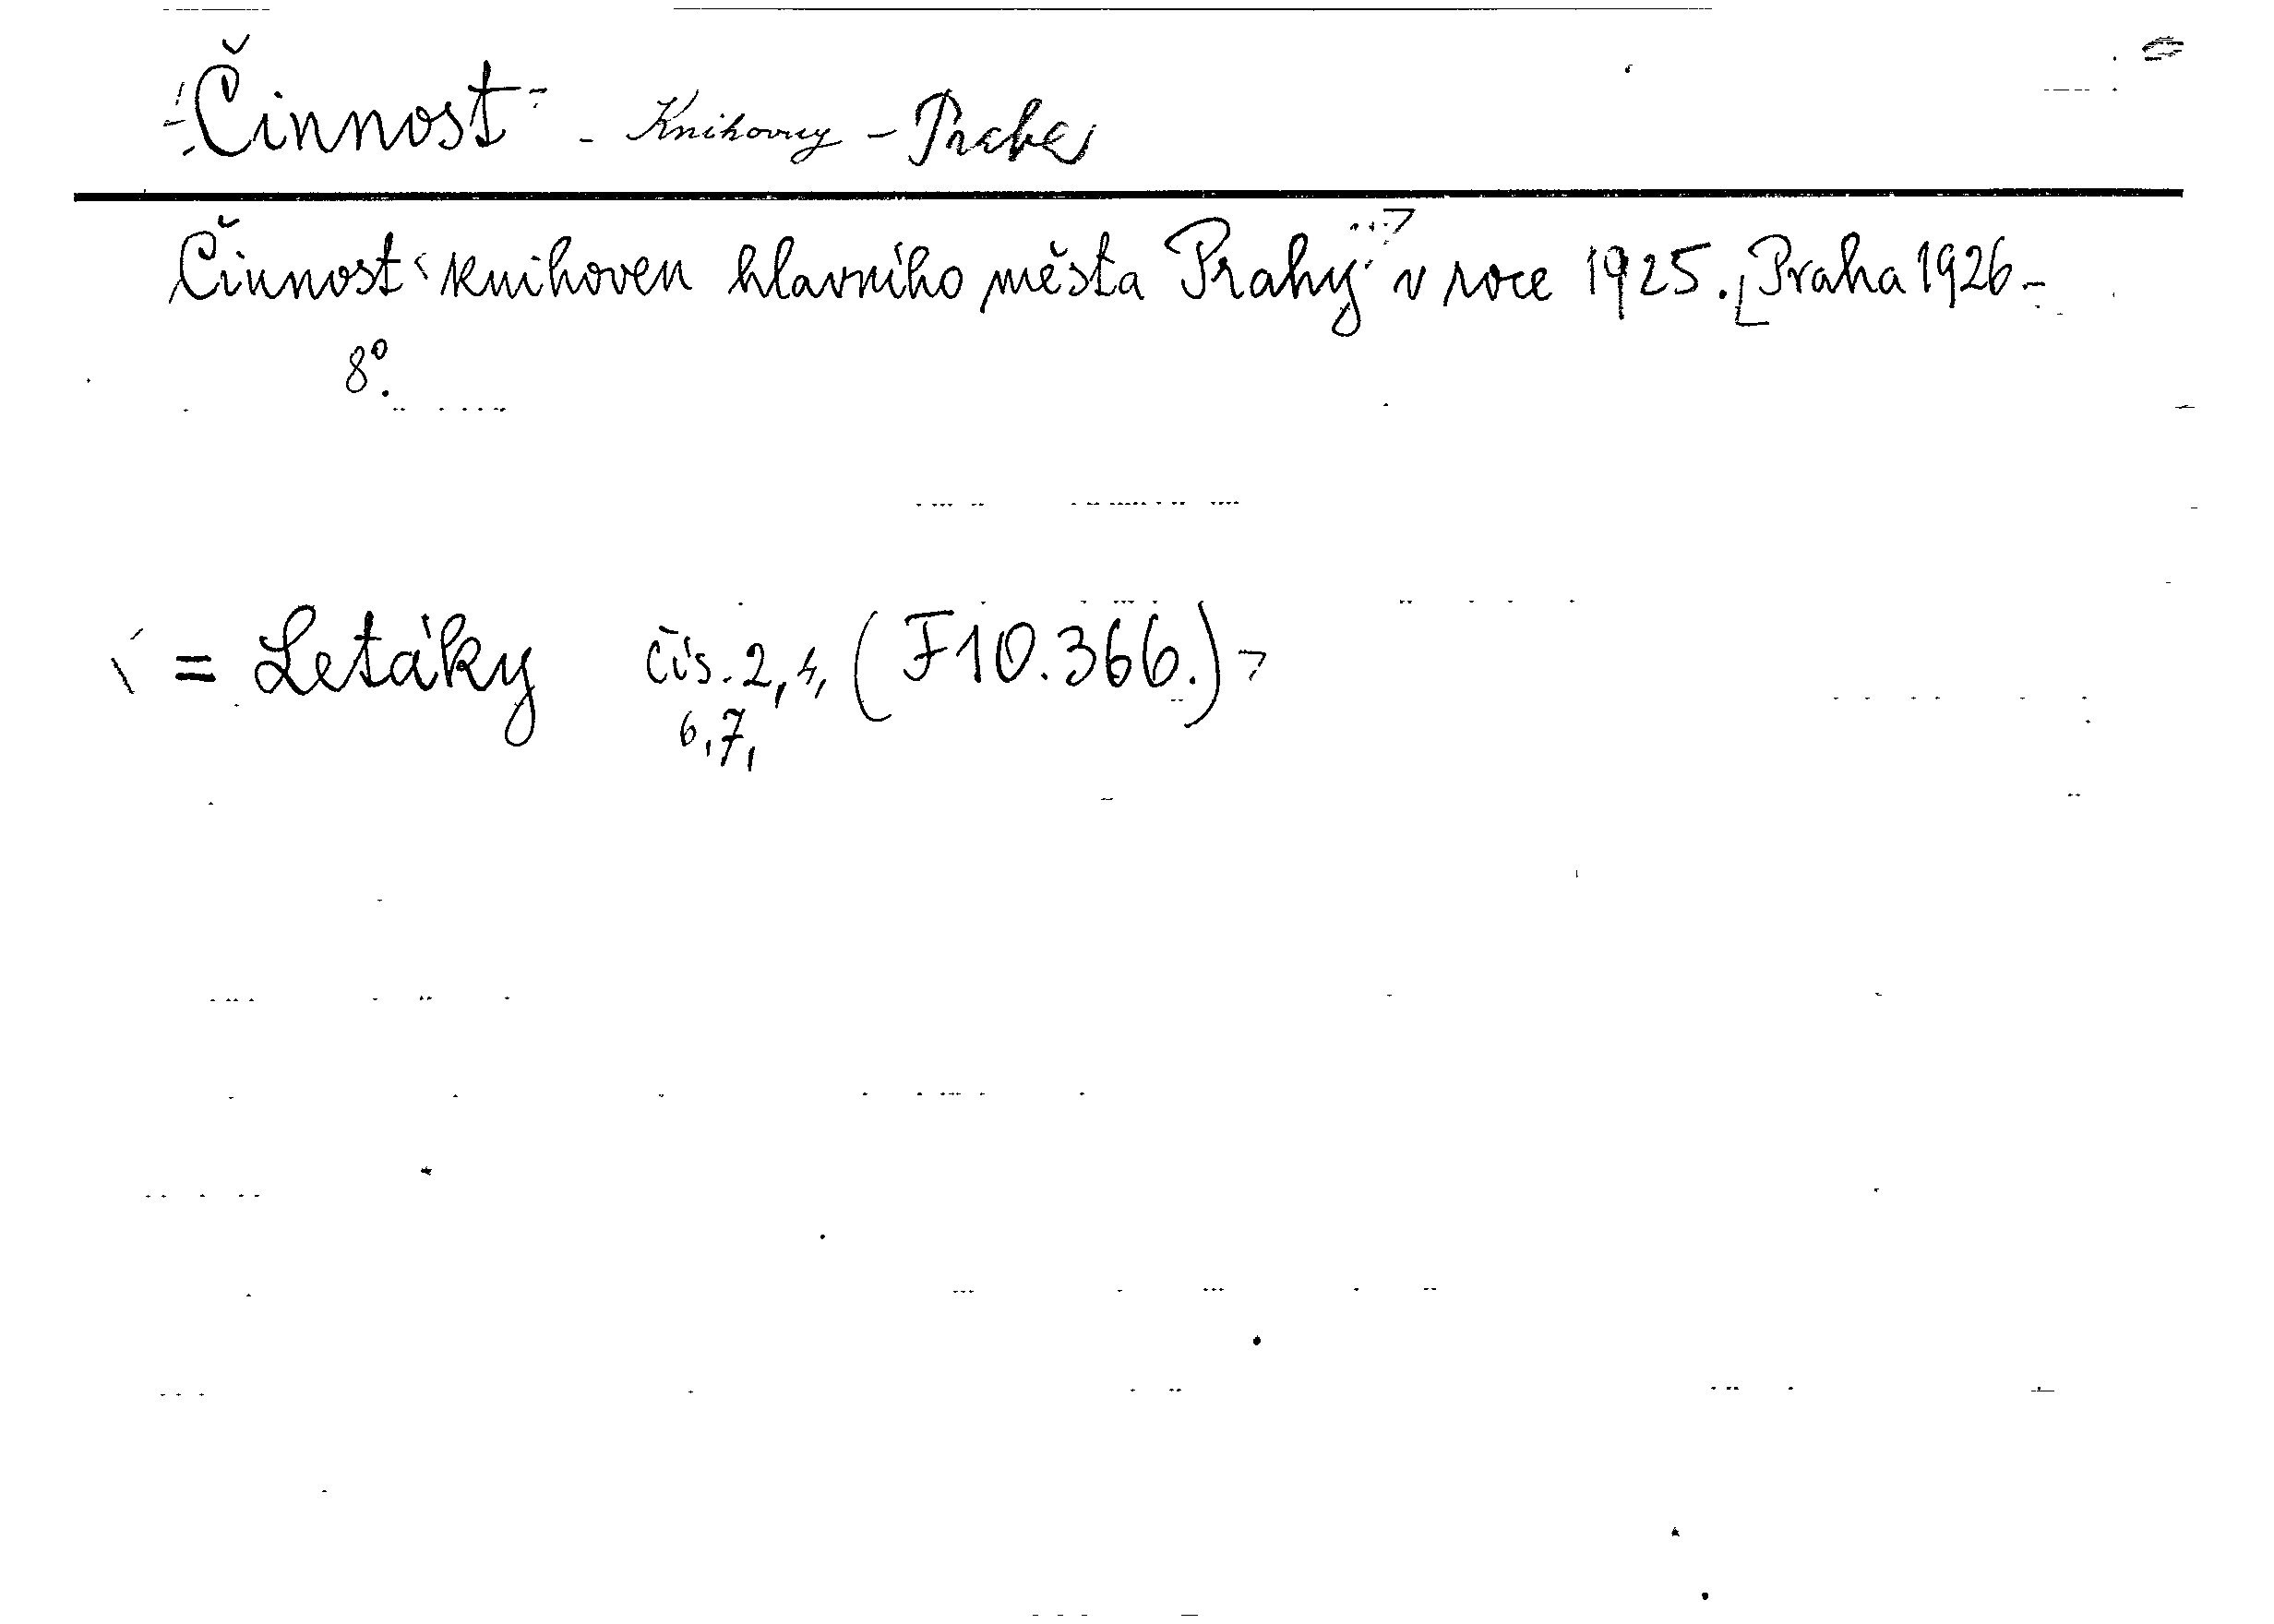 Činnost - Knihovny - Praha
Činnost knihoven hlavního města Prahy v roce 1925. [Praha 1926-
8°.
= Letáky čís. 2, 4, (F10.366.)
6, 7,